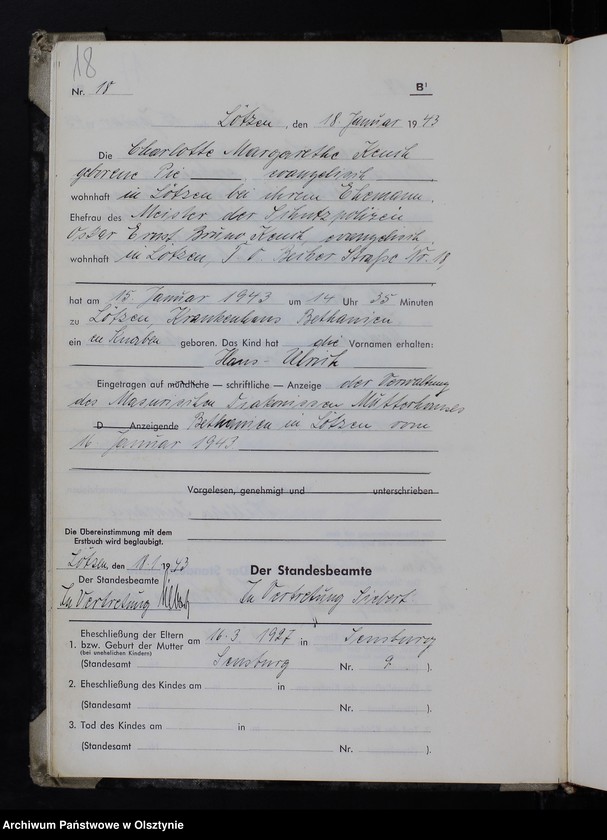 18
Nr. 18 B¹
Lötzen, den 18 Januar 1943
Die Charlotte Margarethe
geborene evangelisch
wohnhaft in Lötzen bei ihrem Ehemann.
Ehefrau des Meister der Schutzpolizei
Oskar Ernst Bruno evangelisch
wohnhaft in Lötzen, Straße Nr. 18,
hat am 15 Januar 1943 um 14 Uhr 35 Minuten
zu Lötzen, Krankenhaus Bethanien
ein en Knaben geboren. Das Kind hat die Vornamen erhalten:
Hans-Ulrich
Eingetragen auf mündliche — schriftliche — Anzeige der Verwaltung
des Masurischen Diakonissen Mutterhauses
D Anzeigende Bethanien in Lötzen vom
16 Januar 1943
Vorgelesen, genehmigt und unterschrieben
Die Übereinstimmung mit dem
Erstbuch wird beglaubigt.
Lötzen, den 18.1.1943
Der Standesbeamte
Der Standesbeamte
In Vertretung
In Vertretung Siebert
Eheschließung der Eltern am 16.3.1927 in Sensburg
1. bzw. Geburt der Mutter
(bei unehelichen Kindern)
(Standesamt Sensburg Nr. 9 ).
2. Eheschließung des Kindes am in
(Standesamt Nr. ).
3. Tod des Kindes am in
(Standesamt Nr. ).
Archiwum Państwowe w Olsztynie